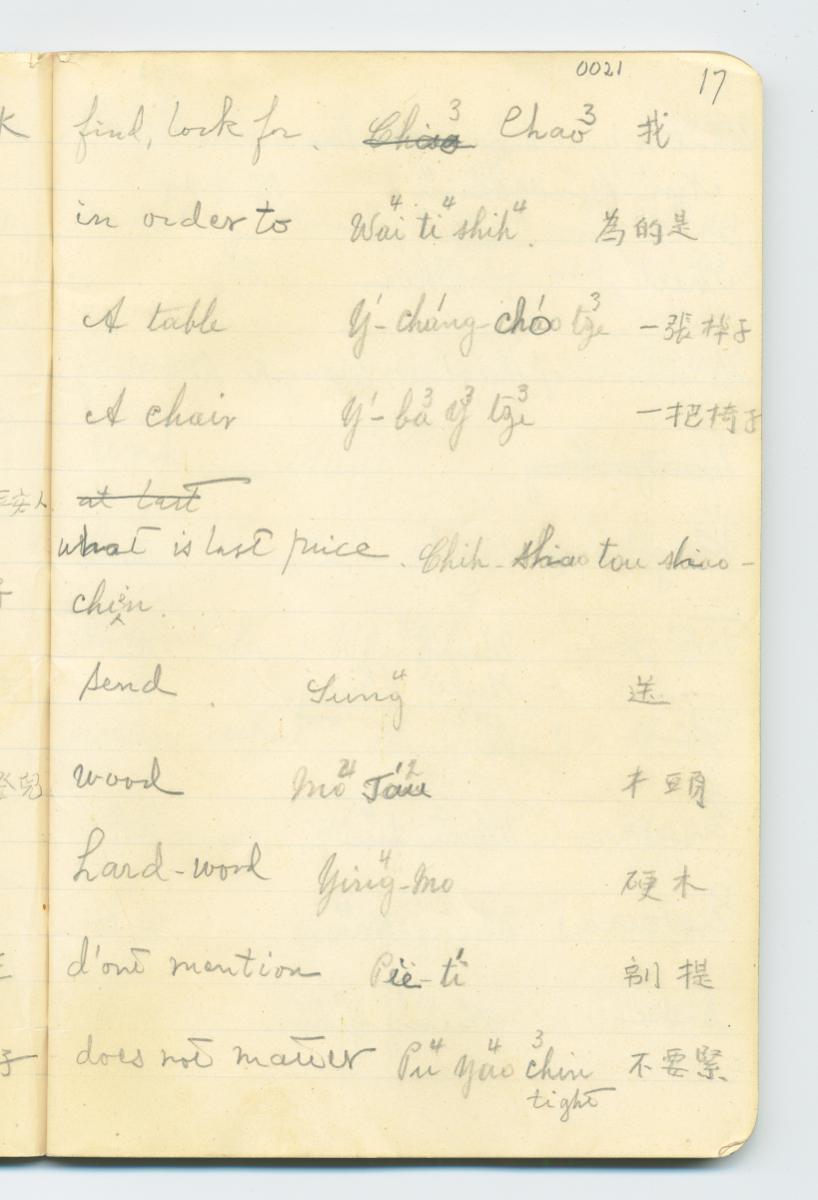 0021
17
find, look for. Chiao³ Chao³ 找
in order to Wai⁴ ti⁴ shih⁴. 為的是
A table Y′- cháng- cháo tze³ 一張桌子
A chair Y′- ba³ Y³ tze³ 一把椅子
at last
what is last price. Chih- shiao tou shiao-
chien.
send Sung⁴ 送
wood Mo⁴ Tóu² 木頭
hard-wood Ying⁴-Mo 硬木
d'ont mention Pié-tí 別提
does not matter Pu⁴ Yao⁴ chin³ 不要緊
tight